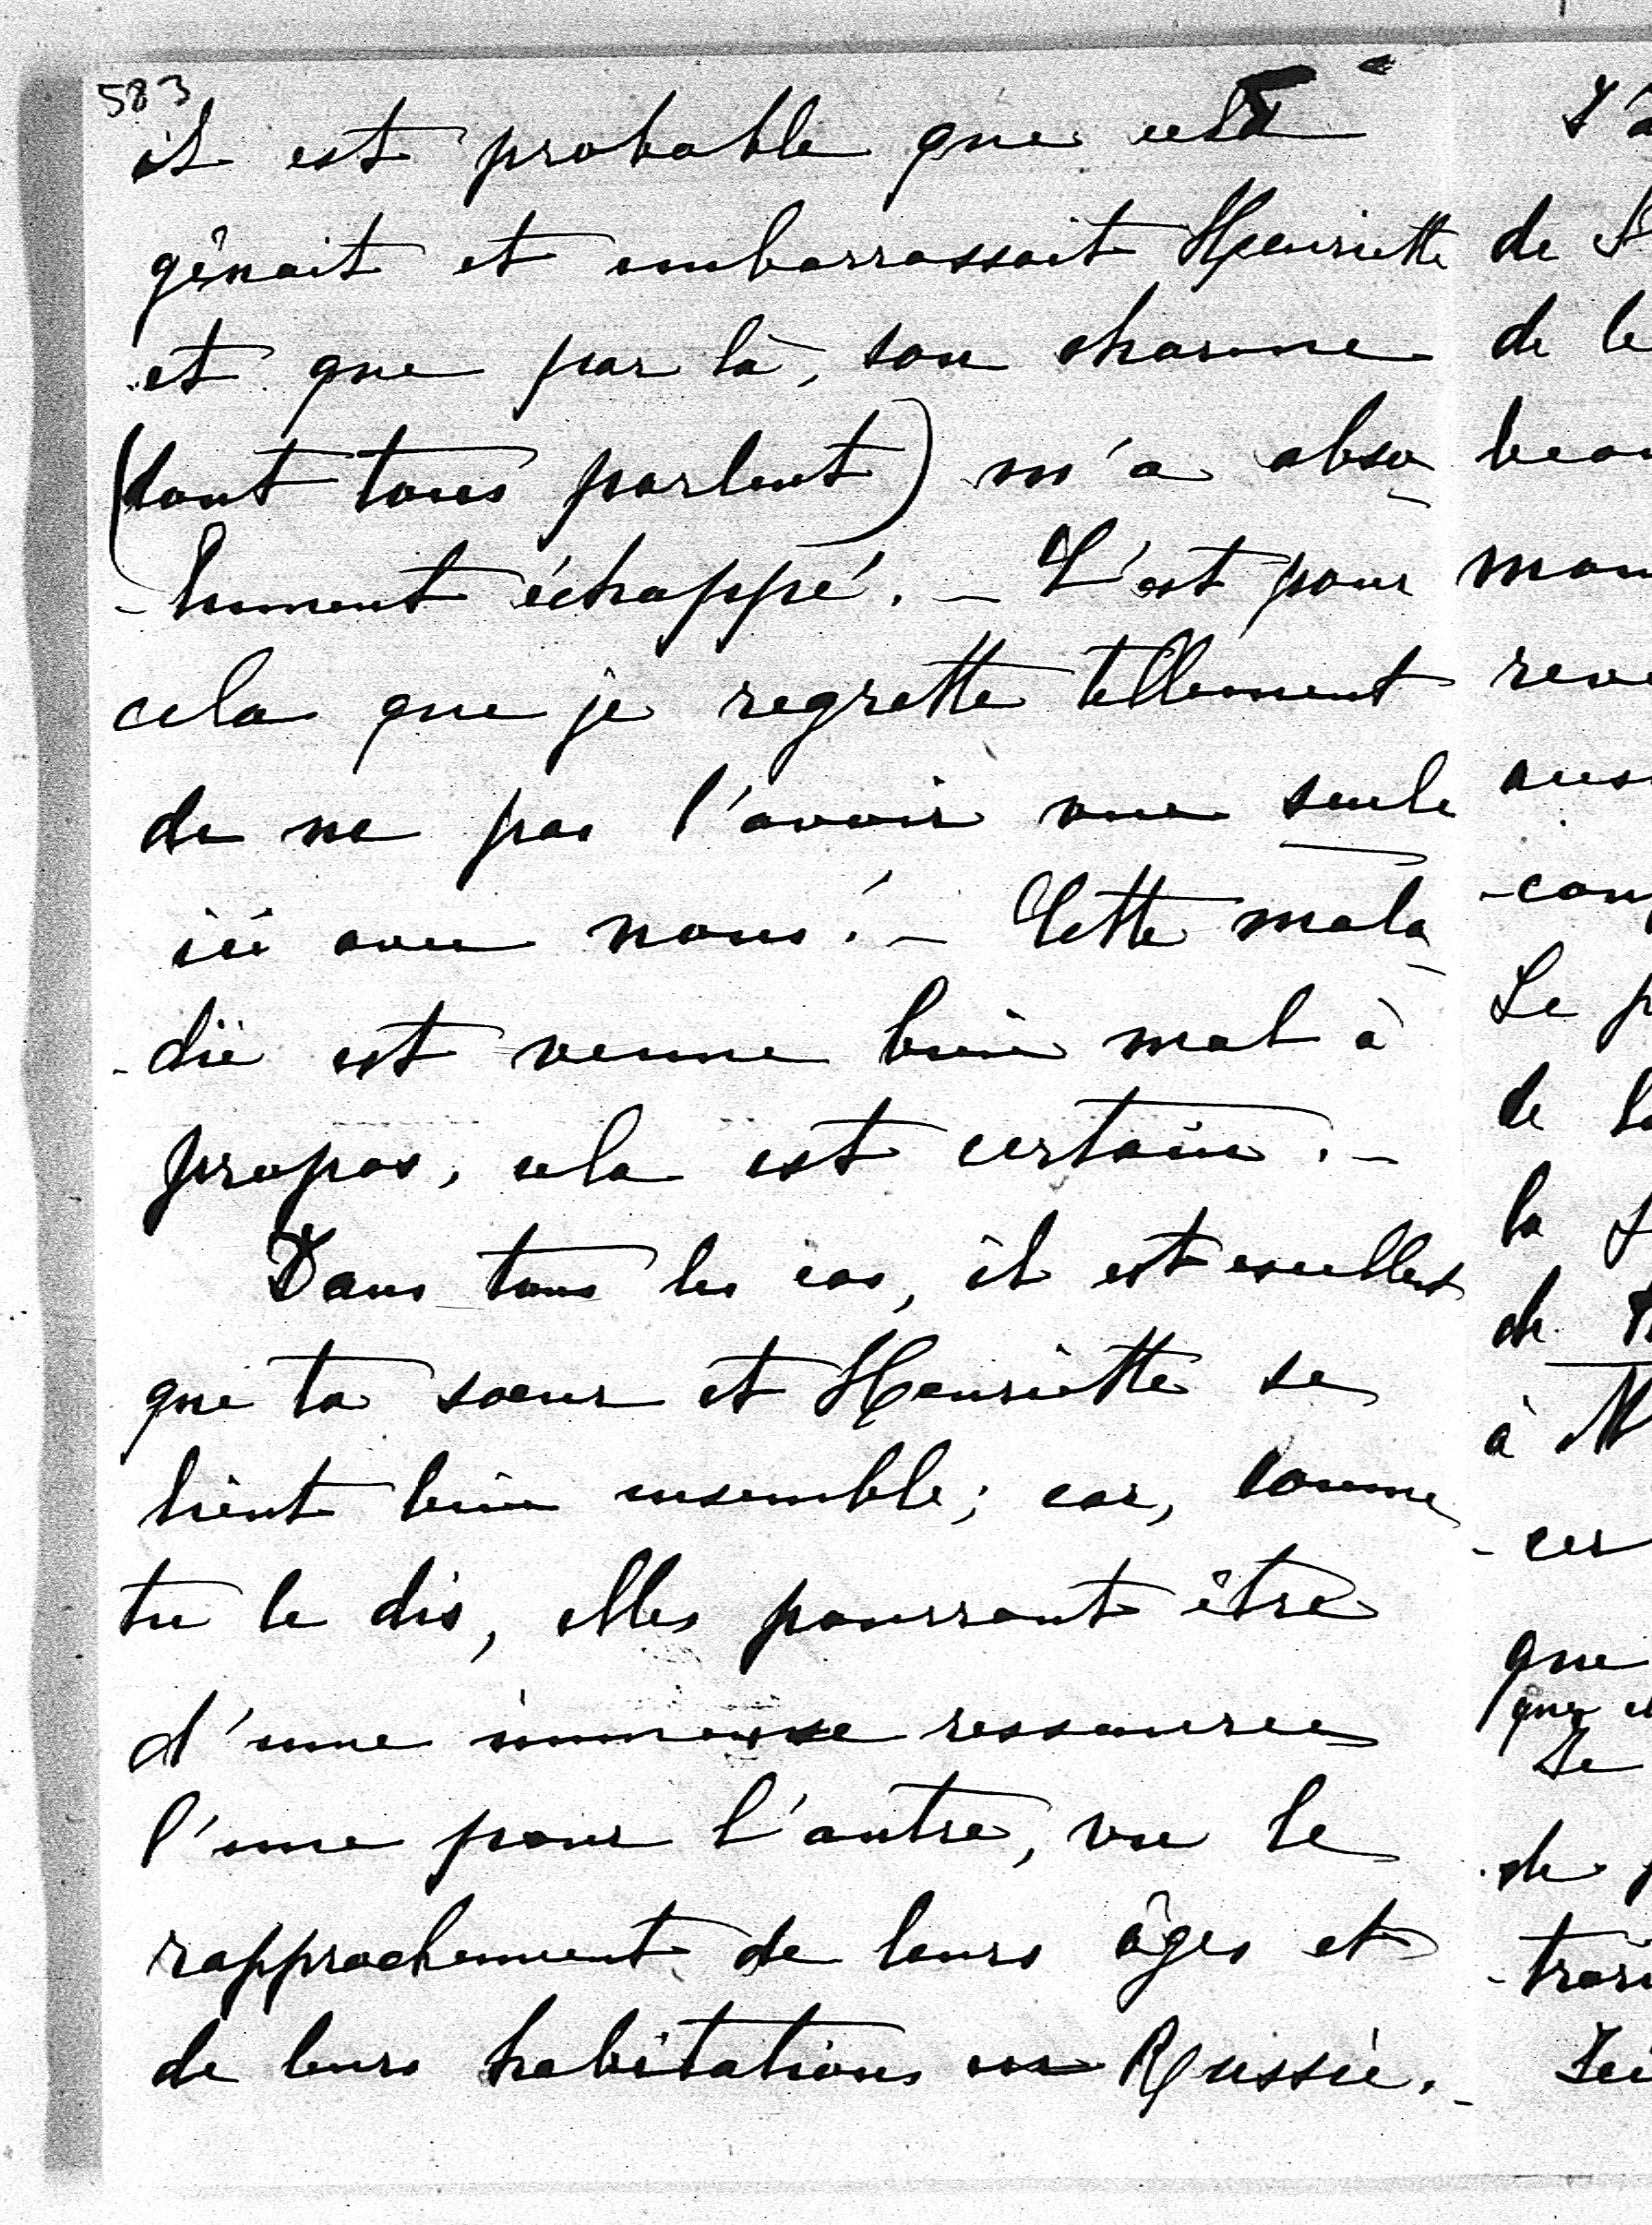 583
il est probable que cela
gênait et embarrassait Henriette
et que par là, son charme
(dont tous parlent) m'a abso-
-lument échappé. – C'est pour
cela que je regrette tellement
de ne pas l'avoir vue seule
ici avec nous! – Cette mala-
-die est venue bien mal à
propos, cela est certain. –
Dans tous les cas, il est excellent
que ta soeur et Henriette se
lient bien ensemble; car, comme
tu le dis, elles pourront être
d'une immense ressource
l'une pour l'autre, vu le
rapprochement de leurs âges et
de leurs habitations en Russie. –
de
de le
-con
Le p
de
la
de
à M
-cer
que
que
Le
de